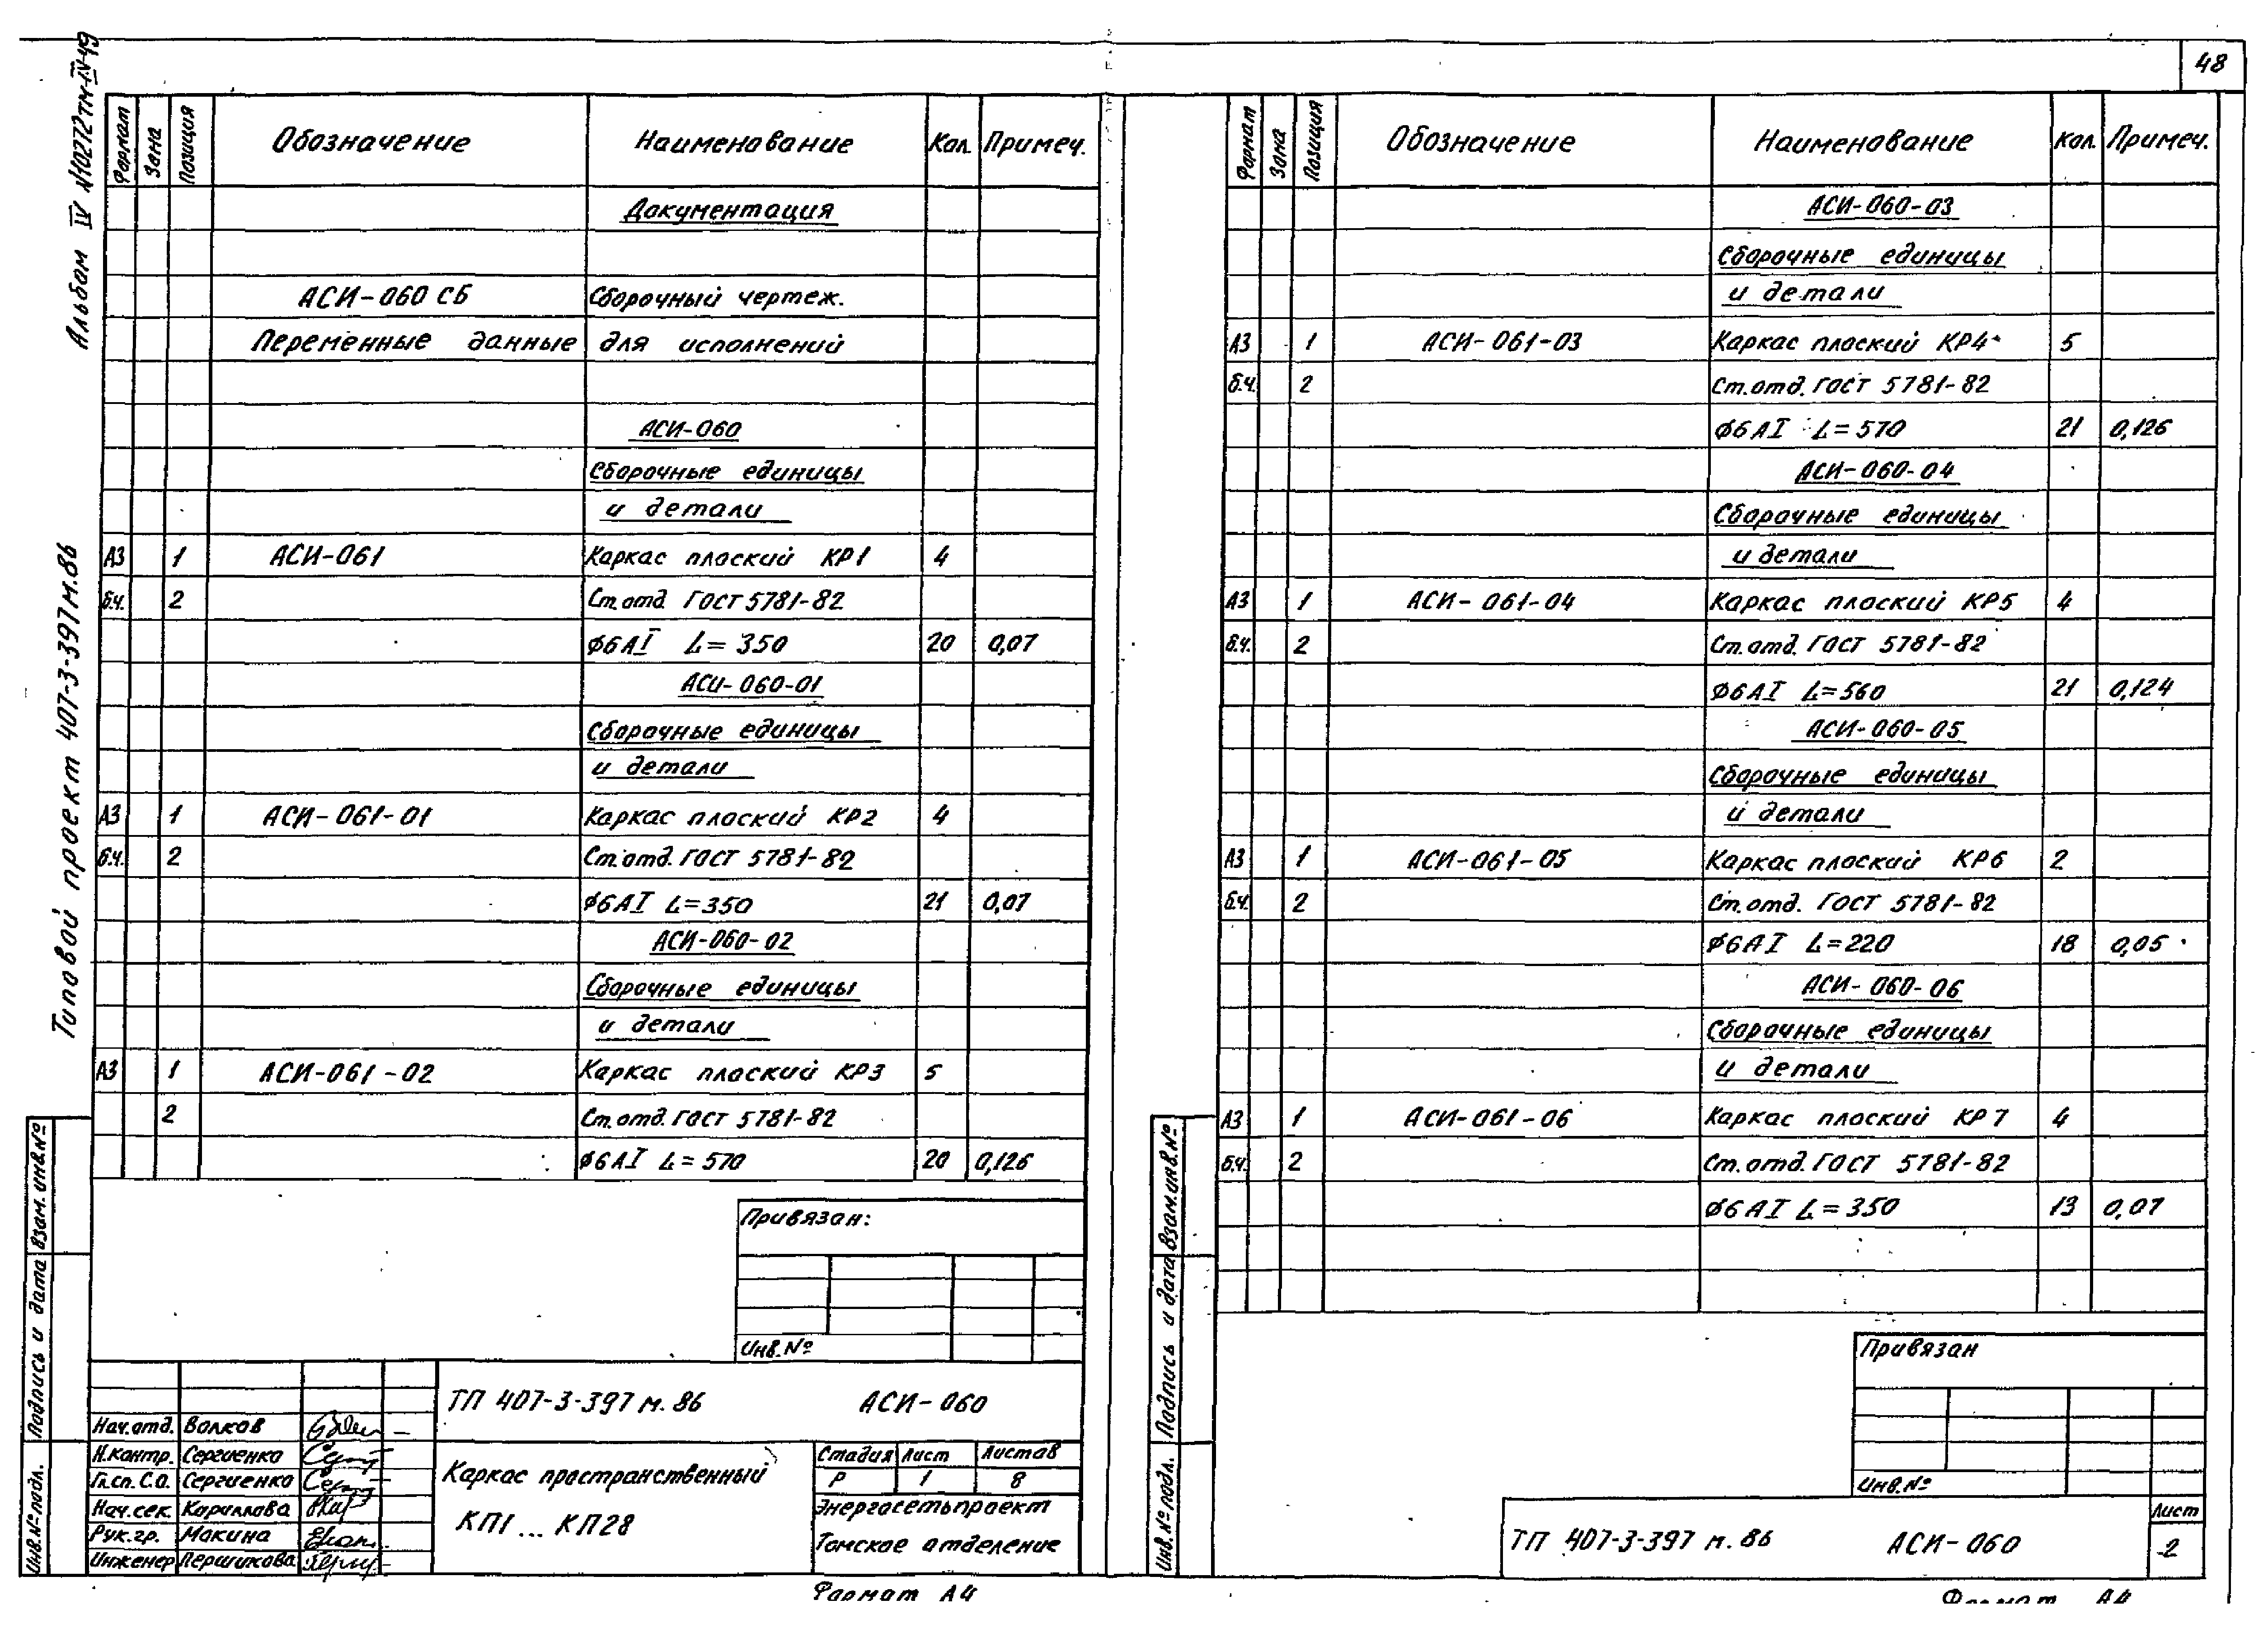 48
Альбом IV №10272тм-IV-49
Типовой проект 407-3-397м.86
Формат Зона Позиция Обозначение Наименование Кол. Примеч.
Документация
АСИ-060 СБ Сборочный чертеж.
Переменные данные для исполнений
АСИ-060
Сборочные единицы
и детали
А3 1 АСИ-061 Каркас плоский КР1 4
б.ч. 2 Ст.отд. ГОСТ 5781-82
ϕ6АI L=350 20 0,07
АСИ-060-01
Сборочные единицы
и детали
А3 1 АСИ-061-01 Каркас плоский КР2 4
б.ч. 2 Ст.отд. ГОСТ 5781-82
ϕ6АI L=350 21 0,07
АСИ-060-02
Сборочные единицы
и детали
А3 1 АСИ-061-02 Каркас плоский КР3 5
2 Ст.отд. ГОСТ 5781-82
ϕ6АI L=570 20 0,126
Привязан:
Инв.№
ТП 407-3-397 м.86 АСИ-060
Нач.отд. Волков
Н.контр. Сергиенко
Гл.сп.С.О. Сергиенко
Нач.сек. Кириллова
Рук.гр. Макина
Инженер Першикова
Каркас пространственный
КП1...КП28
Стадия Лист Листов
Р 1 8
Энергосетьпроект
Томское отделение
Взам.инв.№
Подпись и дата
Инв.№ подл.
Формат А4
Формат Зона Позиция Обозначение Наименование Кол. Примеч.
АСИ-060-03
Сборочные единицы
и детали
А3 1 АСИ-061-03 Каркас плоский КР4 5
б.ч. 2 Ст.отд. ГОСТ 5781-82
ϕ6АI L=570 21 0,126
АСИ-060-04
Сборочные единицы
и детали
А3 1 АСИ-061-04 Каркас плоский КР5 4
б.ч. 2 Ст.отд. ГОСТ 5781-82
ϕ6АI L=560 21 0,124
АСИ-060-05
Сборочные единицы
и детали
А3 1 АСИ-061-05 Каркас плоский КР6 2
б.ч. 2 Ст.отд. ГОСТ 5781-82
ϕ6АI L=220 18 0,05
АСИ-060-06
Сборочные единицы
и детали
А3 1 АСИ-061-06 Каркас плоский КР7 4
б.ч. 2 Ст.отд. ГОСТ 5781-82
ϕ6АI L=350 13 0,07
Привязан
Инв.№
ТП 407-3-397 м.86 АСИ-060
Лист
2
Взам.инв.№
Подпись и дата
Инв.№ подл.
Формат А4